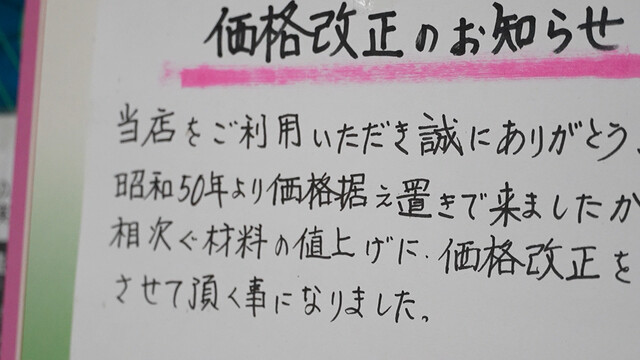 価格改正のお知らせ
当店をご利用いただき誠にありがとう、
昭和50年より価格据え置きで来ましたか
相次ぐ材料の値上げに、価格改正を
させて頂く事になりました。